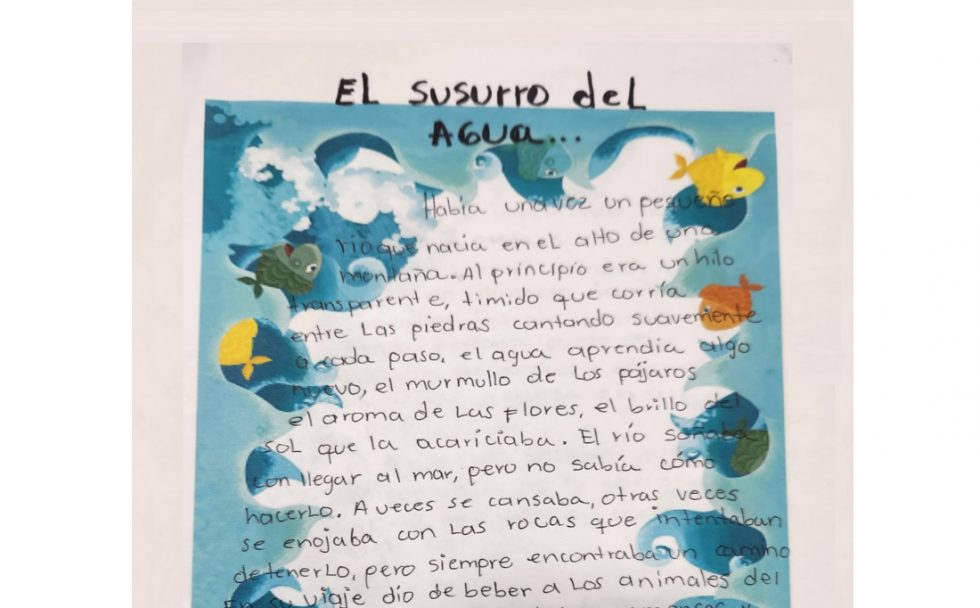 EL SUSURRO DEL
AGUA...
Había una vez un pequeño
río que nacía en el alto de una
montaña. Al principio era un hilo
transparente, timido que corría
entre Las piedras cantando suavemente
a cada paso, el agua aprendía algo
nuevo, el murmullo de Los pájaros
el aroma de Las flores, el brillo del
sol que la acariciaba. El río soñaba
con llegar al mar, pero no sabía cómo
hacerlo. A veces se cansaba, otras veces
se enojaba con Las rocas que intentaban
detenerlo, pero siempre encontraba un camino
En su viaje dio de beber a Los animales del